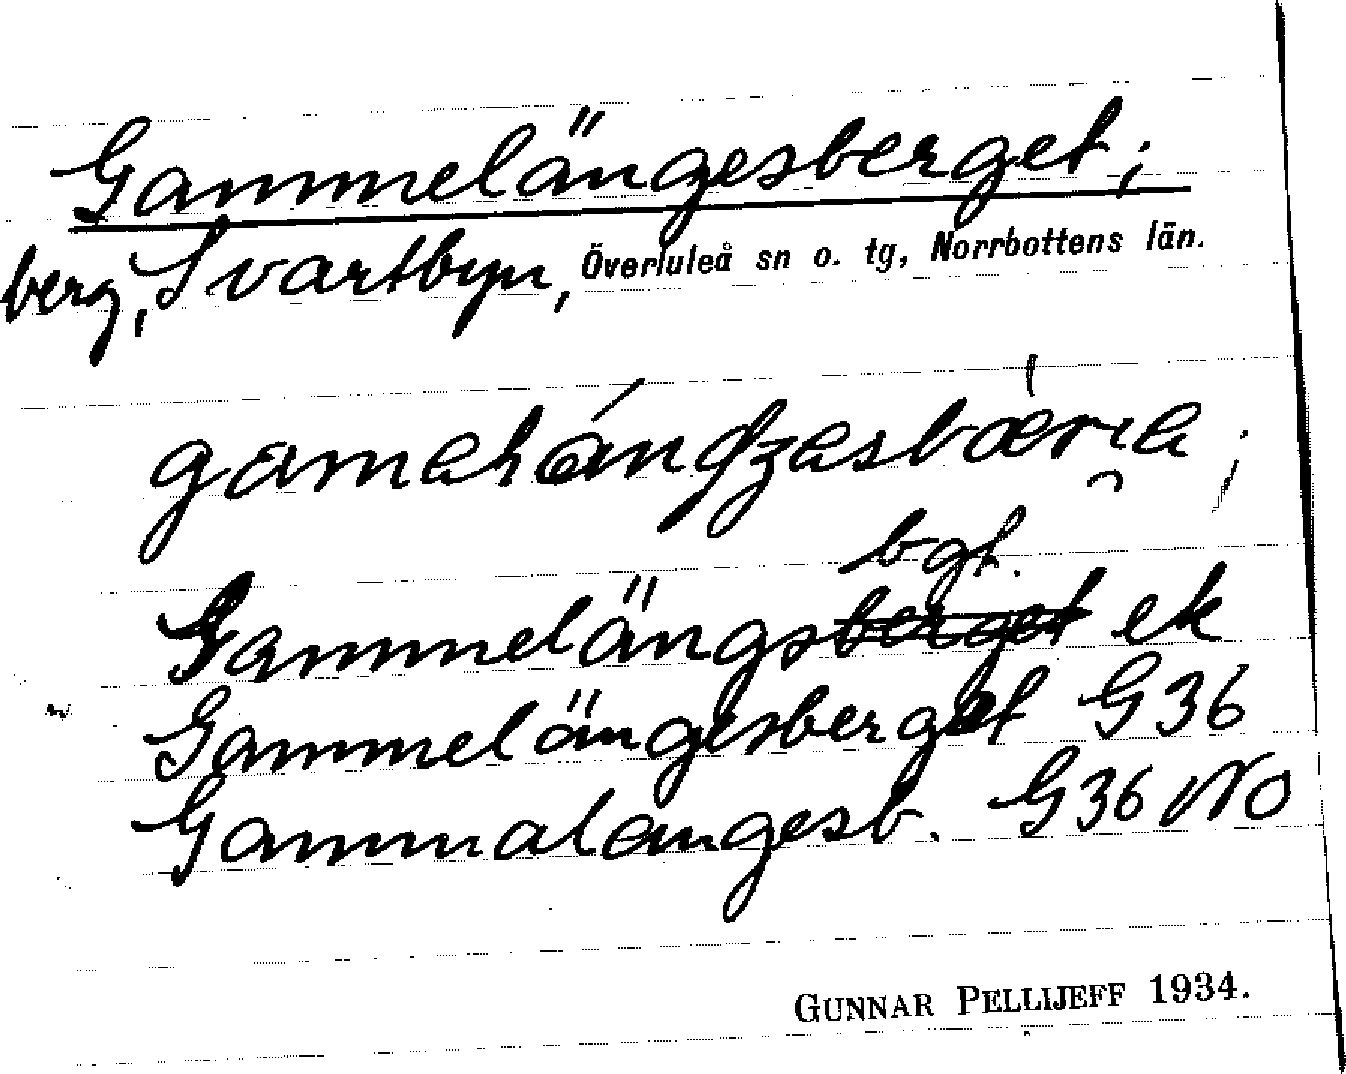 Gammelängesberget;
berg, Svartbyn, Överluleå sn o. tg, Norrbottens län.
bgt.
Gammelängsberget ek
Gammelängesberget G36
Gammalängesb. G36 No
GUNNAR PELLIJEFF 1934.